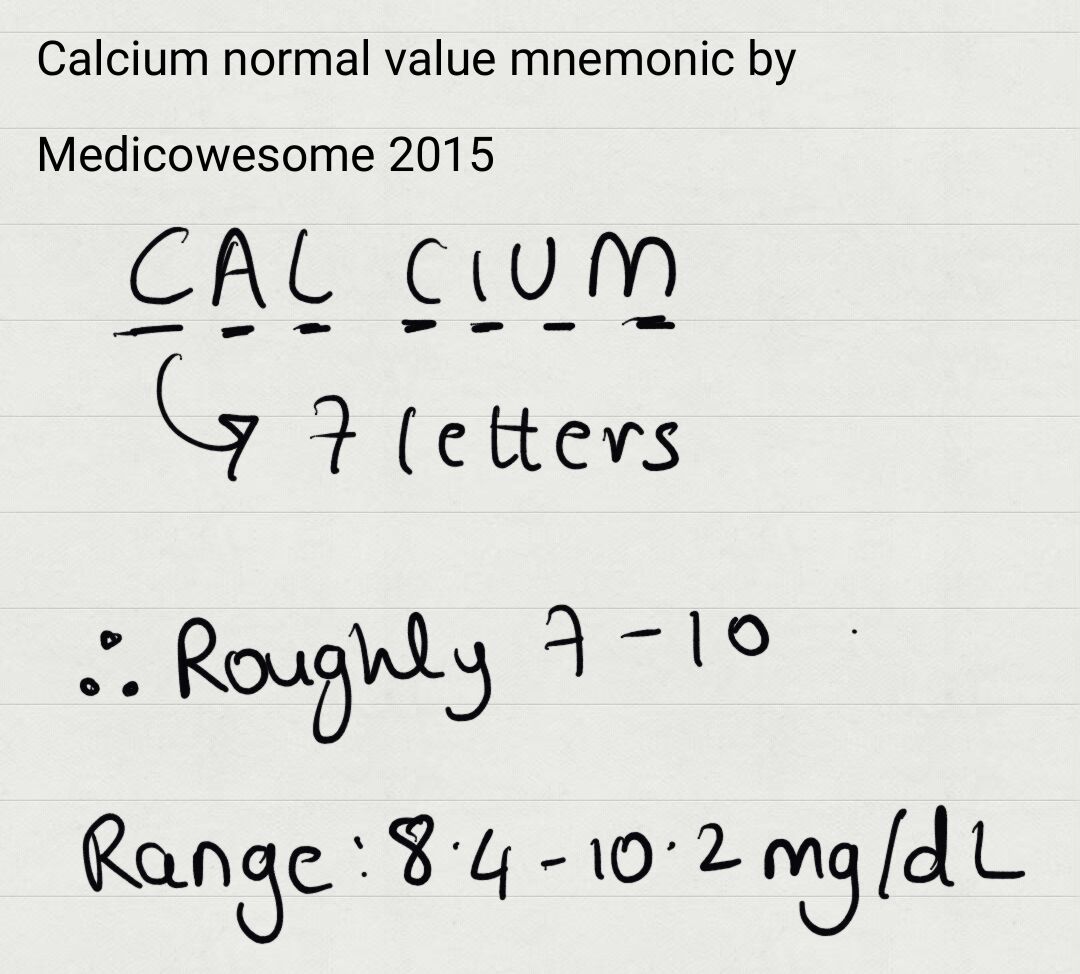 Calcium normal value mnemonic by
Medicowesome 2015
CAL CIUM
7 letters
∴ Roughly 7-10
Range: 8.4-10.2 mg/dL